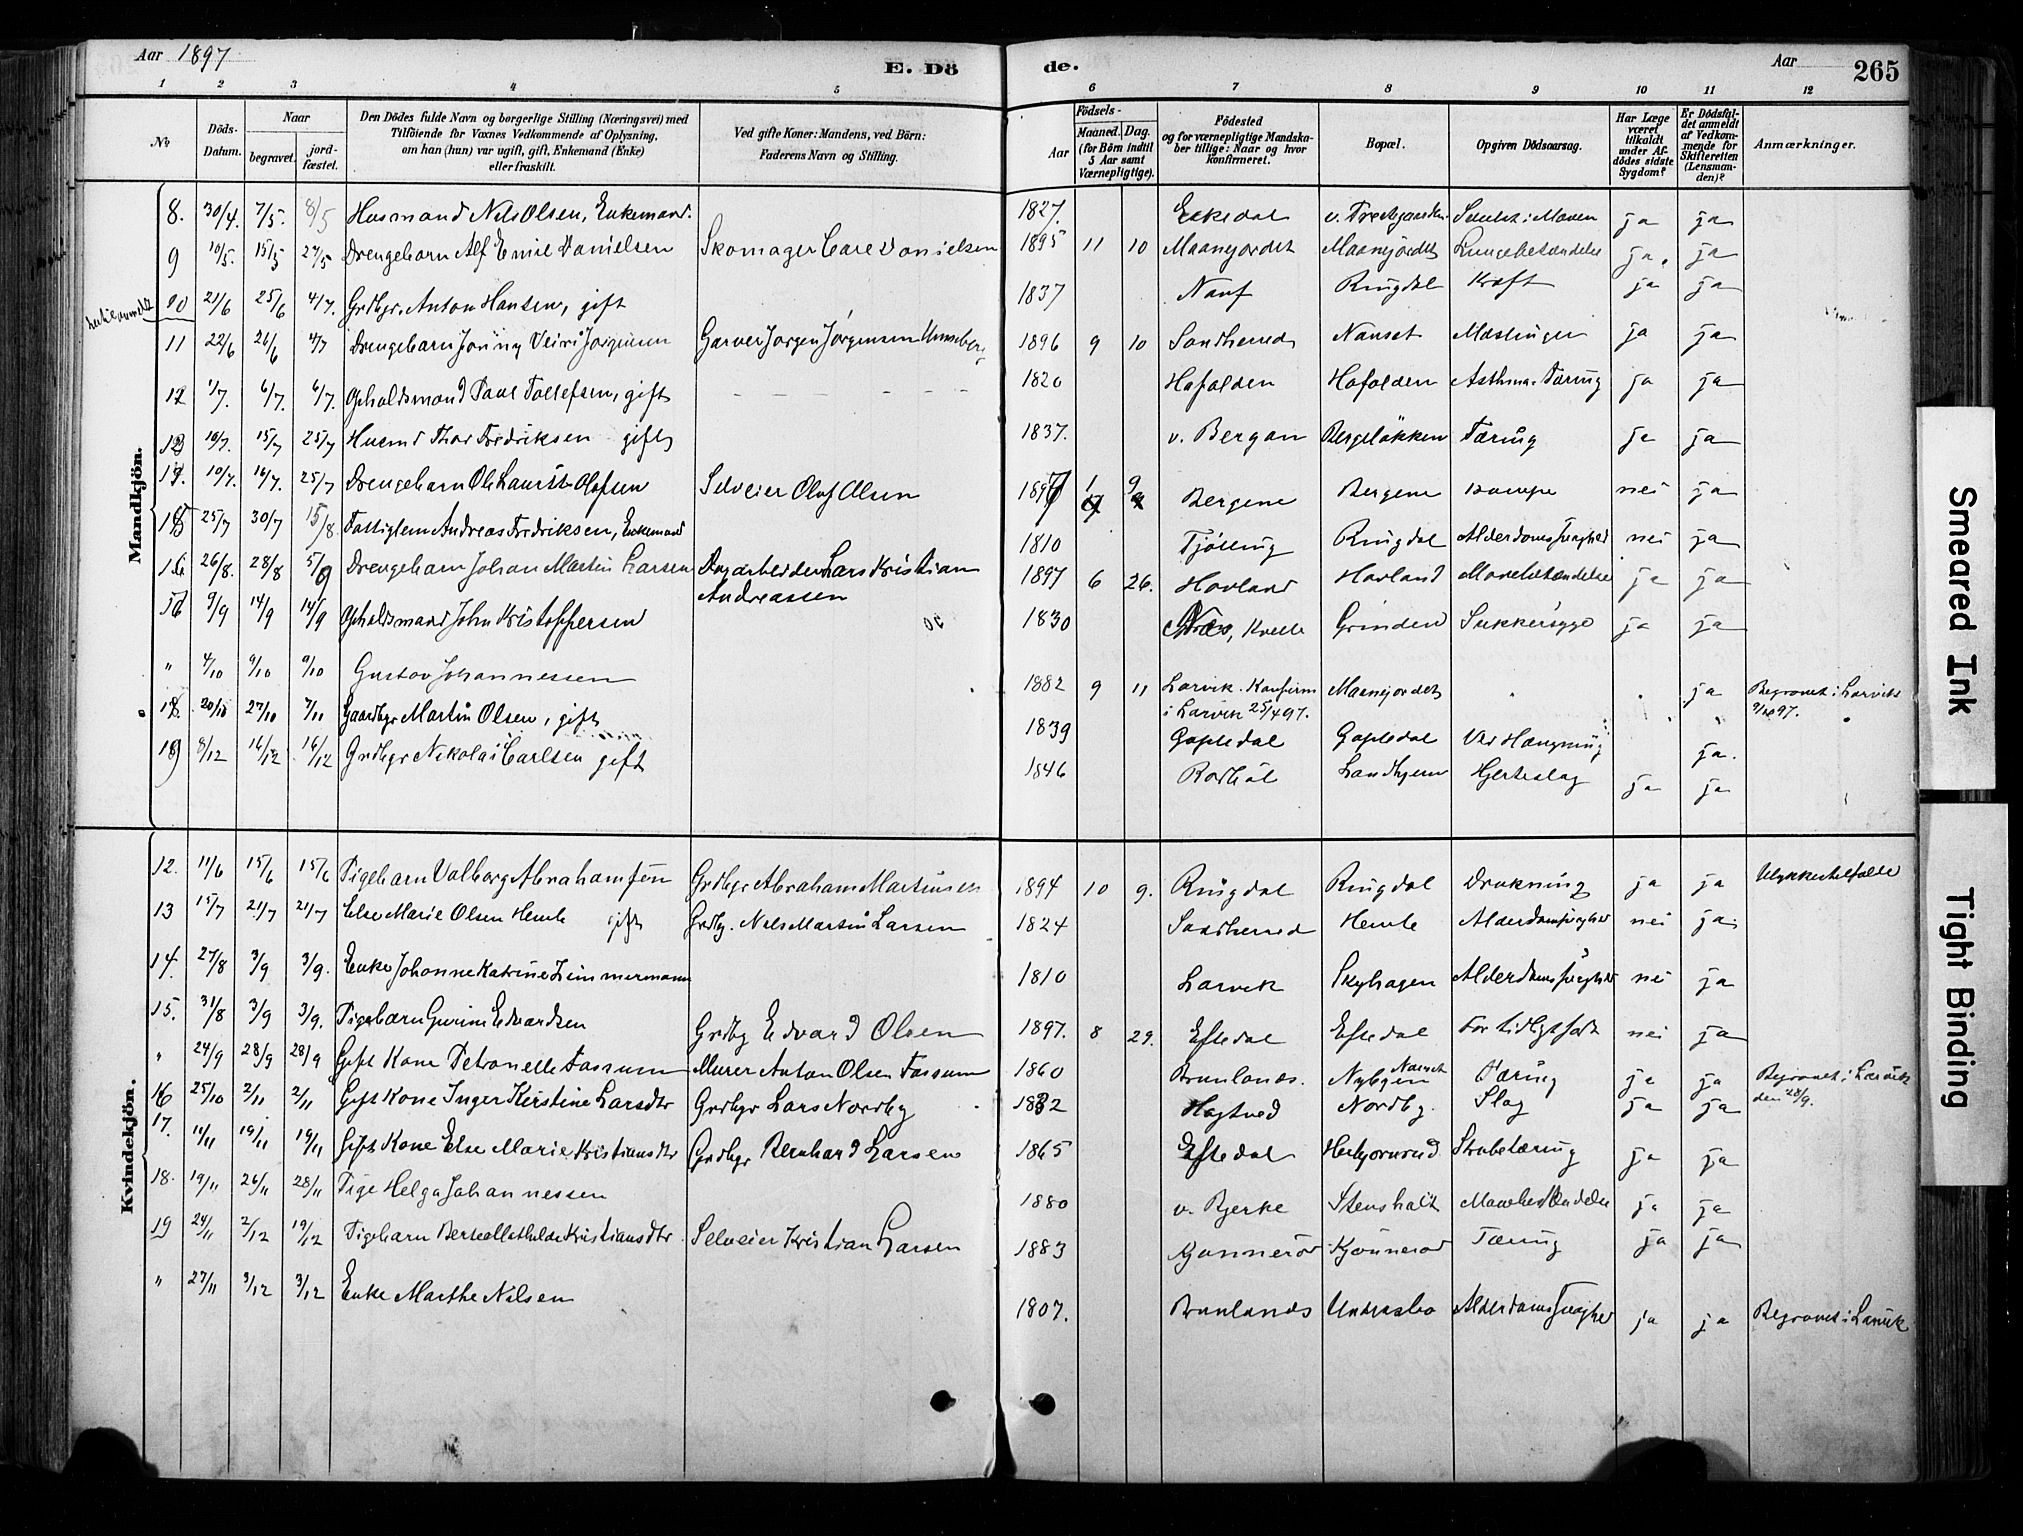 Aar 1897
E. Döde.
Aar
265
1 2 3 4 5 6 7 8 9 10 11 12
No
Döds-Datum.
Naar
begravet.
jord-fæstet.
Den Dödes fulde Navn og borgerlige Stilling (Næringsvei) med Tilföiende for Voxnes Vedkommende af Oplysning, om han (hun) var ugift, gift, Enkemand (Enke) eller fraskilt.
Ved gifte Koner: Mandens, ved Börn: Faderens Navn og Stilling.
Födsels-
Aar
Maaned. Dag.
(for Börn indtil 5 Aar samt Værnepligtige).
Födested og for værnepligtige Mandskaber tillige: Naar og hvor Konfirmeret.
Bopæl.
Opgiven Dödsaarsag.
Har Læge været tilkaldt under Afdödes sidste Sygdom?
Er Dödsfaldet anmeldt af Vedkommende for Skifteretten (Lensmanden)?
Anmærkninger.
Mandkjön.
8. 30/4. 7/5. 8/5 Husmand Nils Olsen, Enkemand. 1827. Eikedal ja ja
9 10/5. 15/5 27/5 Drengebarn Alf Emil Danielsen Skomager Carl Danielsen 1895 11 10 Maanejordet Maanejordet Lungebetændelse ja. ja
10 21/6 25/6 4/7. Grdbgr. Anton Hansen, gift 1837 Nauf Ringdal Kræft ja ja
11 22/6 26/6 4/7 Drengebarn Jörgensen Garver Jørgen Jørgensen 1896 9 10 Sandherred Nanset Mæslinger ja ja
12 1/7. 6/7. 6/7. Opholdsmand Paul Tollefsen, gift 1820 Hafalden Hafalden Asthma. Tæring ja ja
13 10/7. 15/7 25/7 Husmd Thor Fredriksen gift 1837. v. Bergan Bergeløkken Tæring ja ja
14. 10/7. 16/7. 25/7 Drengebarn Ole Laurits Olafsen Selveier Olaf Olsen 1897 1 9 Bergene Bergene Krampe nei ja
15 25/7 30/7 15/8 Fattiglem Andreas Fredriksen, Enkemand 1810 Tjölling Ringdal Alderdomssvaghed nei ja
16 26/8. 28/8 5/9 Drengebarn Johan Martin Larsen Dagarbeider Lars Kristian Andreassen 1897 6 26. Hovland Hovland Mavebetændelse ja ja
9/9 14/9 14/9 Opholdsmand John Kristoffersen 1830 Næs, Kvelle Grinden Sukkersyge ja ja
" 4/10 9/10 9/10 Gustav Johannessen 1882 9 11 Larvik. Konfirm. i Larvik 25/4 97. Maanejordet ja Begravet i Larvik 9/10 97.
18. 20/10 27/10 7/11 Gaardbgr Martin Olsen, gift 1839 Gopledal Gopledal Ved Hængning ja.
19 8/12 16/12 16/12 Grdbgr Nikolai Carlsen gift 1846 Rödböl Landhjem Hjerteslag ja ja
Kvindekjön.
12. 11/6 15/6 15/6 Pigebarn Valborg Abrahamsen Grdbgr Abraham Martinsen 1894 10 9. Ringdal Ringdal Drukning ja ja Ulykkestilfælde
13 15/7 21/7 21/7 Else Marie Olsen Hemle gift Grdbg. Nils Martin Larsen 1824 Sandherred Hemle Alderdomssvaghed nei ja.
14. 27/8 3/9 3/9. Enke Johanne Katrine Zimmermann 1810 Larvik Skyhagen Alderdomssvaghed nei ja
15. 31/8 3/9 3/9. Pigebarn Gurine Edvardsen Grdbg Edvard Olsen 1897. 8 29. Eftedal Eftedal For tidligt födt nei ja
" 24/9 28/9 28/9 Gift Kone Petronelle Fossum Murer Anton Olsen Fossum 1860 Brunlands. Nybyen Nanset Tæring ja ja Begravet i Larvik den 28/9.
16 25/10 2/11 2/11 Gift Kone Inger Kirstine Larsdtr Grdbgr Lars Nordby 1832 Hogtved Nordby. Slag ja ja
17. 11/11 19/11 19/11 Gift Kone Else Marie Kristiansdtr Grdbgr Bernhard Larsen 1865 Eftedal Strubetæring ja ja
18. 19/11 26/11 28/11 Pige Helga Johannessen 1880 v. Bjerke Stensholt Mavebetændelse ja ja
19 24/11 2/12 19/12 Pigebarn Berte Mathilde Kristiansdtr Selveier Kristian Larsen 1883 Gjønneröd Kjønneröd Tæring ja ja
" 27/11 3/12 3/12 Enke Marthe Nilsen 1807. Brunlands Undersbo Alderdomssvaghed ja ja Begravet i Larvik
Smeared Ink
Tight Binding